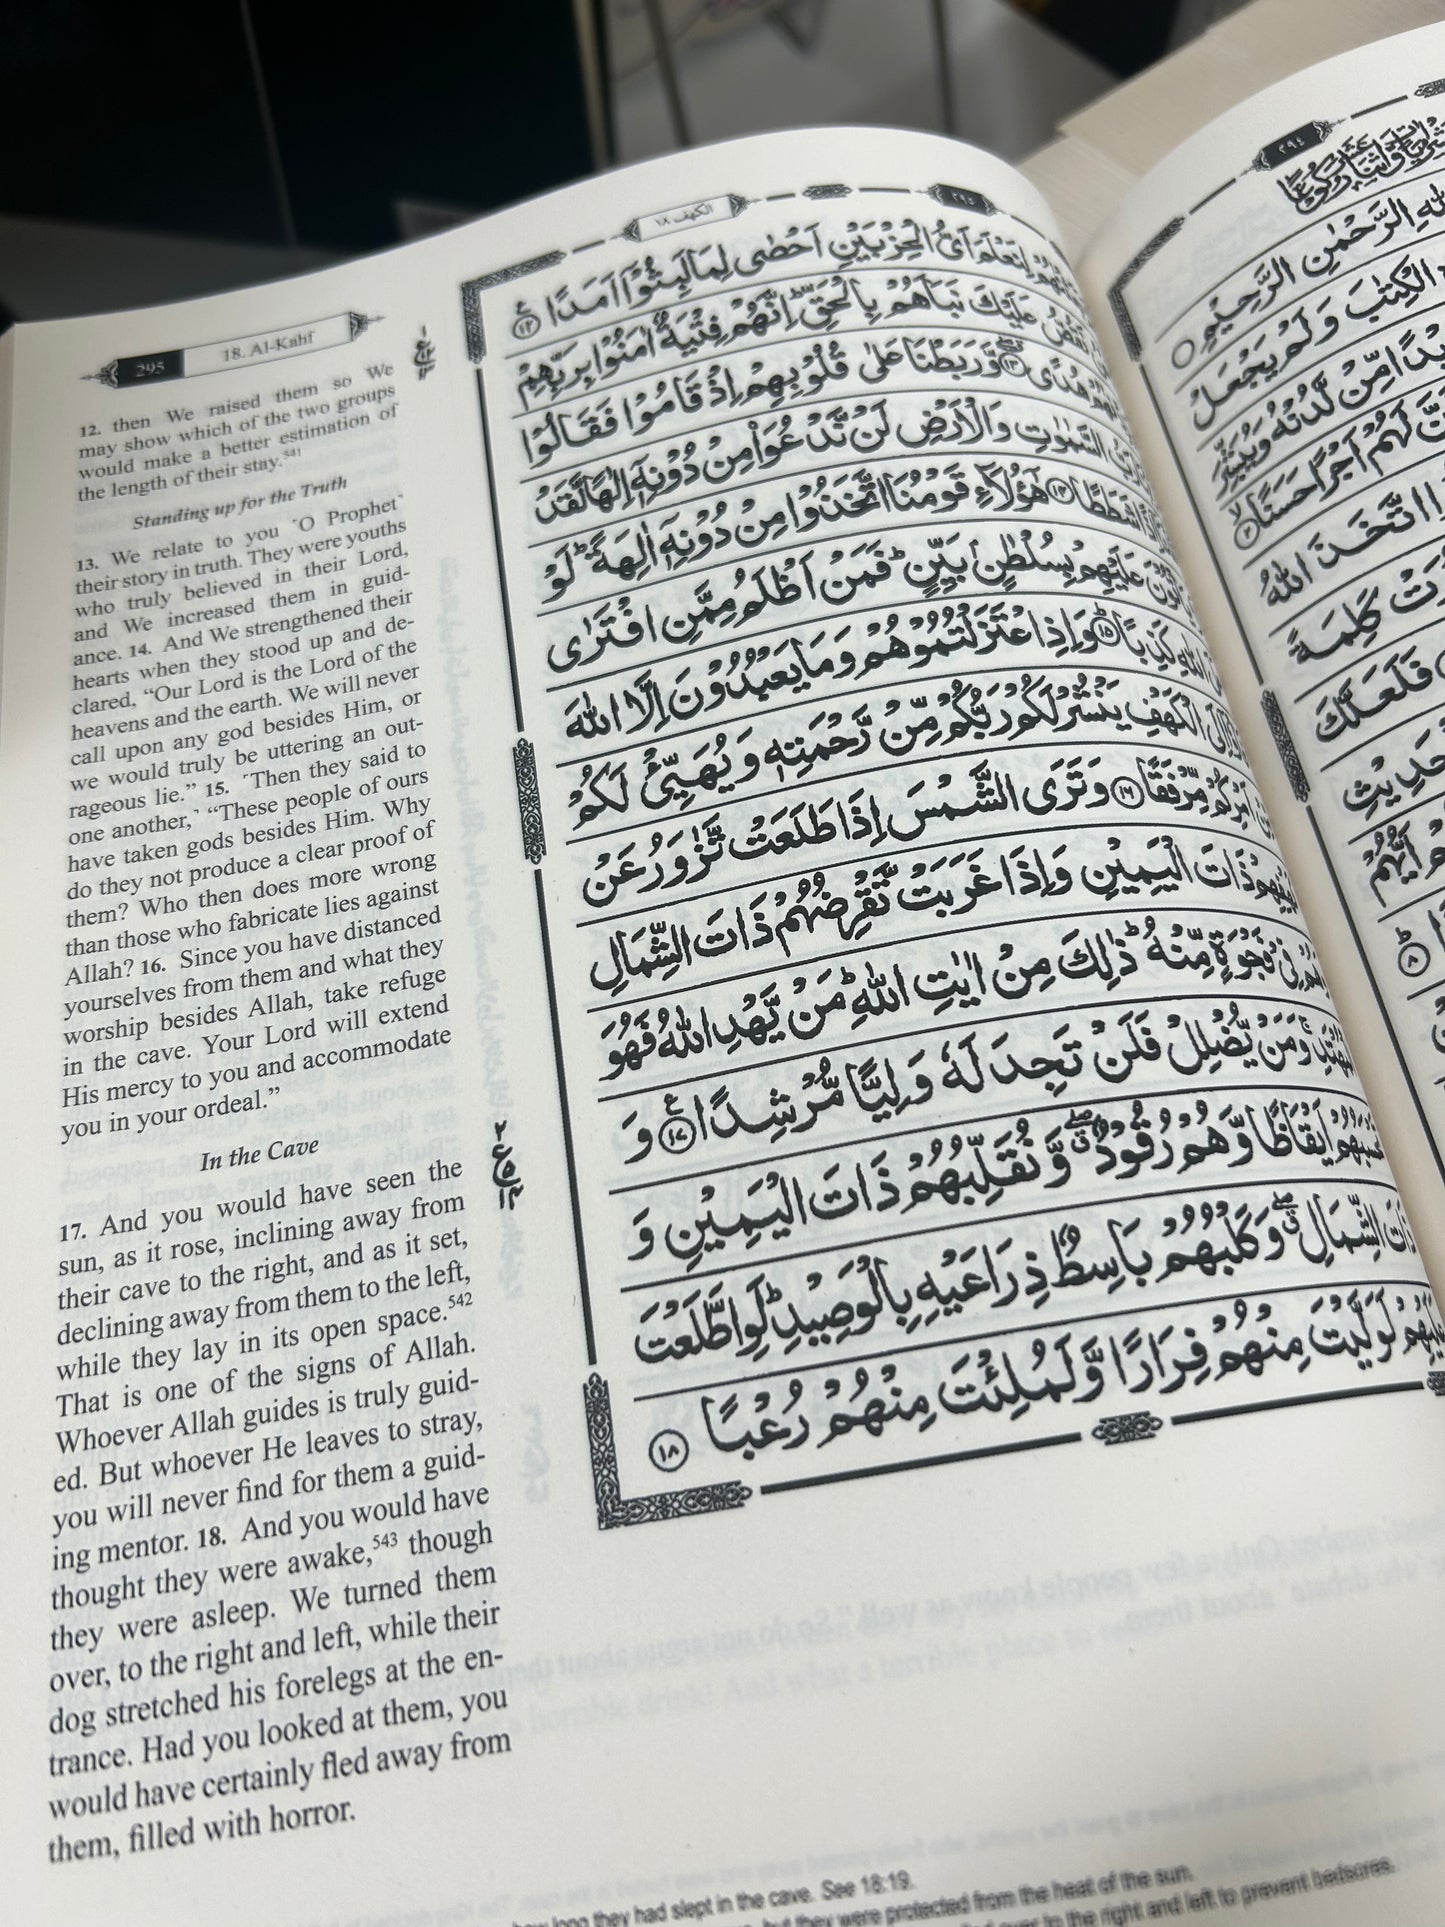 295
18. Al-Kahf
12. then We raised them so We
may show which of the two groups
would make a better estimation of
the length of their stay.541
Standing up for the Truth
13. We relate to you ˹O Prophet˺
their story in truth. They were youths
who truly believed in their Lord,
and We increased them in guid-
ance. 14. And We strengthened their
hearts when they stood up and de-
clared, “Our Lord is the Lord of the
heavens and the earth. We will never
call upon any god besides Him, or
we would truly be uttering an out-
rageous lie.” 15. ˹Then they said to
one another,˺ “These people of ours
have taken gods besides Him. Why
do they not produce a clear proof of
them? Who then does more wrong
than those who fabricate lies against
Allah? 16. Since you have distanced
yourselves from them and what they
worship besides Allah, take refuge
in the cave. Your Lord will extend
His mercy to you and accommodate
you in your ordeal.”
In the Cave
17. And you would have seen the
sun, as it rose, inclining away from
their cave to the right, and as it set,
declining away from them to the left,
while they lay in its open space.542
That is one of the signs of Allah.
Whoever Allah guides is truly guid-
ed. But whoever He leaves to stray,
you will never find for them a guid-
ing mentor. 18. And you would have
thought they were awake,543 though
they were asleep. We turned them
over, to the right and left, while their
dog stretched his forelegs at the en-
trance. Had you looked at them, you
would have certainly fled away from
them, filled with horror.
٢٩٥
الكهف ١٨
لِنَعْلَمَ اَىُّ الْحِزْبَيْنِ اَحْصٰى لِمَا لَبِثُوْٓا اَمَدًا ۱۲
نَقُصُّ عَلَيْكَ نَبَاَهُمْ بِالْحَقِّ ؕ اِنَّهُمْ فِتْيَةٌ اٰمَنُوْا بِرَبِّهِمْ
هُدًى ۱۳ وَّرَبَطْنَا عَلٰى قُلُوْبِهِمْ اِذْ قَامُوْا فَقَالُوْا
رَبُّ السَّمٰوٰتِ وَالْاَرْضِ لَنْ نَّدْعُوَا۟ مِنْ دُوْنِهٖٓ اِلٰهًا لَّقَدْ
شَطَطًا ۱۴ هٰٓؤُلَآءِ قَوْمُنَا اتَّخَذُوْا مِنْ دُوْنِهٖٓ اٰلِهَةً ؕ لَوْ
عَلَيْهِمْ بِسُلْطٰنٍۢ بَيِّنٍ ؕ فَمَنْ اَظْلَمُ مِمَّنِ افْتَرٰى
اللّٰهِ كَذِبًا ؕ ۱۵ وَاِذِ اعْتَزَلْتُمُوْهُمْ وَمَا يَعْبُدُوْنَ اِلَّا اللّٰهَ
اِلَى الْكَهْفِ يَنْشُرْ لَكُمْ رَبُّكُمْ مِّنْ رَّحْمَتِهٖ وَيُهَيِّئْ لَكُمْ
اَمْرِكُمْ مِّرْفَقًا ۱۶ وَتَرَى الشَّمْسَ اِذَا طَلَعَتْ تَّزٰوَرُ عَنْ
ذَاتَ الْيَمِيْنِ وَاِذَا غَرَبَتْ تَّقْرِضُهُمْ ذَاتَ الشِّمَالِ
فِىْ فَجْوَةٍ مِّنْهُ ؕ ذٰلِكَ مِنْ اٰيٰتِ اللّٰهِ ؕ مَنْ يَّهْدِ اللّٰهُ فَهُوَ
الْمُهْتَدِ ۚ وَمَنْ يُّضْلِلْ فَلَنْ تَجِدَ لَهٗ وَلِيًّا مُّرْشِدًا ۱۷ وَ
اَيْقَاظًا وَّهُمْ رُقُوْدٌ ۖ وَّنُقَلِّبُهُمْ ذَاتَ الْيَمِيْنِ وَ
ذَاتَ الشِّمَالِ ۖ وَكَلْبُهُمْ بَاسِطٌ ذِرَاعَيْهِ بِالْوَصِيْدِ ؕ لَوِ اطَّلَعْتَ
عَلَيْهِمْ لَوَلَّيْتَ مِنْهُمْ فِرَارًا وَّلَمُلِئْتَ مِنْهُمْ رُعْبًا ۱۸
٢٩٤
اللّٰهِ الرَّحْمٰنِ الرَّحِيْمِ
الْكِتٰبَ وَلَمْ يَجْعَلْ
مِّنْ لَّدُنْهُ وَيُبَشِّرَ
لَهُمْ اَجْرًا حَسَنًا ۲
اتَّخَذَ اللّٰهُ
كَلِمَةً
فَلَعَلَّكَ
اَيُّهُمْ
۸
how long they had slept in the cave. See 18:19.
but they were protected from the heat of the sun.
over to the right and left to prevent bedsores.